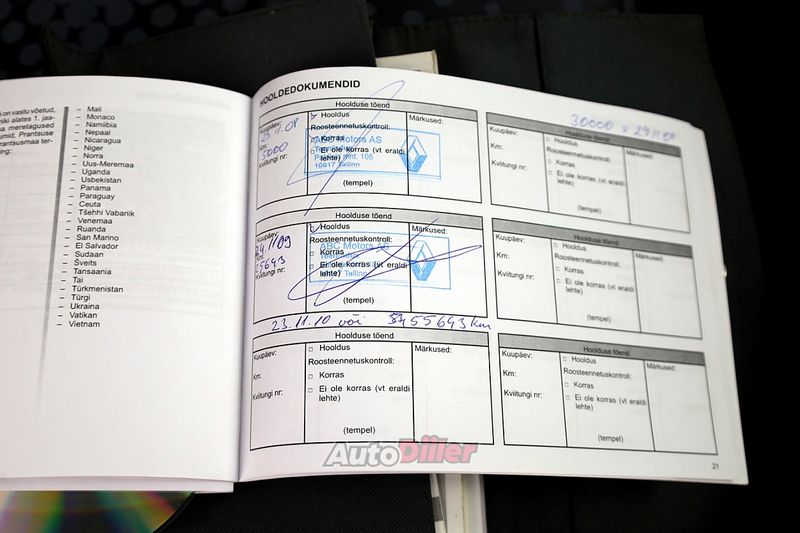 on vastu võetud,
niki alates 1. jaa-
ma meretagused
umid, Prantsuse
rantsusmaa ter-
ing:
– Mali
– Monaco
– Namibia
– Nepaal
– Nicaragua
– Niger
– Norra
– Uus-Meremaa
– Uganda
– Usbekistan
– Panama
– Paraguay
– Ceuta
– Tšehhi Vabariik
– Venemaa
– Ruanda
– San Marino
– El Salvador
– Sudaan
– Šveits
– Tansaania
– Tai
– Türkmenistan
– Türgi
– Ukraina
– Vatikan
– Vietnam
HOOLDEDOKUMENDID
Hoolduse tõend
Kuupäev:
Km:
5000
Kviitungi nr:
Hooldus
Roosteennetuskontroll:
Korras
Ei ole korras (vt eraldi
lehte)
(tempel)
Märkused:
ABC Motors AS
10617 Tallinn
30000 v 29.11.09
Hoolduse tõend
Kuupäev:
Km:
Kviitungi nr:
Hooldus
Roosteennetuskontroll:
Korras
Ei ole korras (vt eraldi
lehte)
(tempel)
Märkused:
Hoolduse tõend
Kuupäev:
24.11.09
Km:
25693
Kviitungi nr:
Hooldus
Roosteennetuskontroll:
Korras
Ei ole korras (vt eraldi
lehte)
(tempel)
Märkused:
ABC Motors AS
Tallinn
Hoolduse tõend
Kuupäev:
Km:
Kviitungi nr:
Hooldus
Roosteennetuskontroll:
Korras
Ei ole korras (vt eraldi
lehte)
(tempel)
Märkused:
23.11.10 või 55693 km
Hoolduse tõend
Kuupäev:
Km:
Kviitungi nr:
Hooldus
Roosteennetuskontroll:
Korras
Ei ole korras (vt eraldi
lehte)
(tempel)
Märkused:
Hoolduse tõend
Kuupäev:
Km:
Kviitungi nr:
Hooldus
Roosteennetuskontroll:
Korras
Ei ole korras (vt eraldi
lehte)
(tempel)
Märkused:
21
AutoDiller